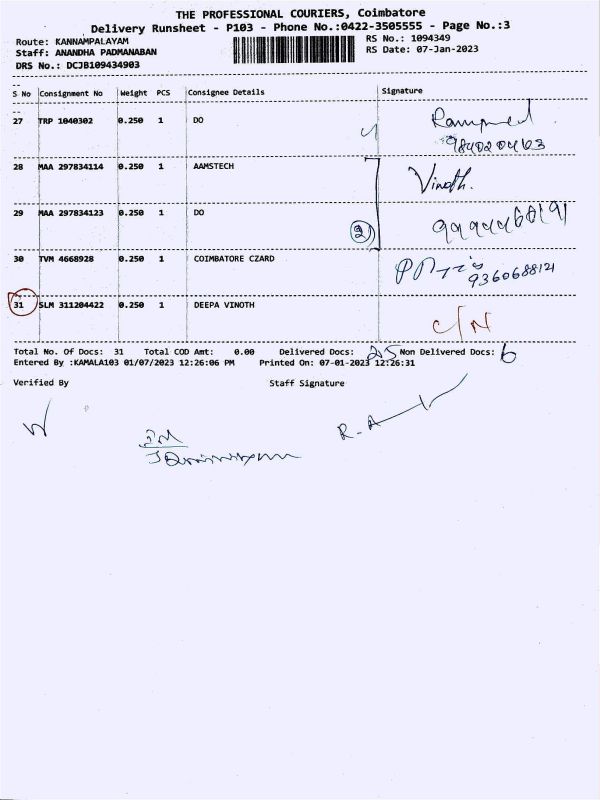 THE PROFESSIONAL COURIERS, Coimbatore
Delivery Runsheet - P103 - Phone No.:0422-3505555 - Page No.:3
Route: KANNAMPALAYAM
RS No.: 1094349
Staff: ANANDHA PADMANABAN
RS Date: 07-Jan-2023
DRS No.: DCJB109434903
S No Consignment No Weight PCS Consignee Details Signature
27 TRP 1040302 0.250 1 DO
28 MAA 297834114 0.250 1 AAMSTECH Vinoth.
29 MAA 297834123 0.250 1 DO
2
30 TVM 4668928 0.250 1 COIMBATORE CZARD
9360688121
31 SLM 311204422 0.250 1 DEEPA VINOTH C/N
Total No. Of Docs: 31 Total COD Amt: 0.00 Delivered Docs: 25 Non Delivered Docs: 6
Entered By :KAMALA103 01/07/2023 12:26:06 PM Printed On: 07-01-2023 12:26:31
Verified By Staff Signature